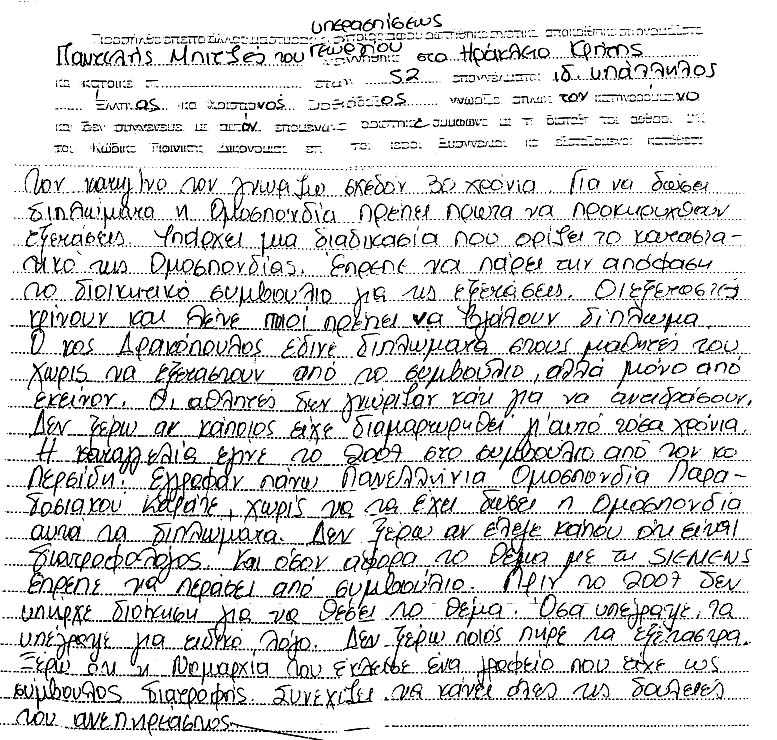 υπερασπίσεως
Παντελής Μπιτζές του Γεωργίου στο Ηράκλειο Κρήτης
52 ιδ. υπάλληλος
τον κατηγορούμενο
και δεν συγγενεύω με αυτόν
Τον κατηγ/νο τον γνωρίζω σχεδόν 30 χρόνια. Για να δώσει
διπλώματα η Ομοσπονδία πρέπει πρώτα να προκηρυχθούν
εξετάσεις. Υπάρχει μια διαδικασία που ορίζει το καταστα-
τικό της Ομοσπονδίας. Έπρεπε να πάρει την απόφαση
το διοικητικό συμβούλιο για τις εξετάσεις. Οι εξεταστές
κρίνουν και λένε ποιοί πρέπει να βγάλουν δίπλωμα.
Ο κος Δρακόπουλος έδινε διπλώματα στους μαθητές του
χωρίς να εξεταστουν από το συμβούλιο, αλλά μόνο από
εκείνον. Οι αθλητές δεν γνώριζαν κάτι για να αντιδράσουν.
Δεν ξέρω αν κάποιος είχε διαμαρτυρηθεί γι' αυτό τόσα χρόνια.
Η καταγγελία έγινε το 2007 στο συμβούλιο από τον κο
Περσίδη. Έγραφαν πάνω Πανελλήνια Ομοσπονδία Παρα-
δοσιακού Καράτε, χωρίς να τα έχει δώσει η Ομοσπονδία
αυτά τα διπλώματα. Δεν ξέρω αν έλεγε κάπου ότι είναι
διατροφολόγος. Και όσον αφορά το θέμα με τη SIEMENS
έπρεπε να περάσει από συμβούλιο. Πριν το 2007 δεν
υπήρχε διοίκηση για να θέσει το θέμα. Όσα υπέγραψε, τα
υπέγραψε για ειδικό λόγο. Δεν ξέρω ποιός πήρε τα εξέταστρα.
Ξέρω ότι η Νομαρχία του έκλεισε ένα γραφείο που είχε ως
σύμβουλος διατροφής. Συνεχίζει να κάνει όλες τις δουλειές
του ανεπηρέαστος